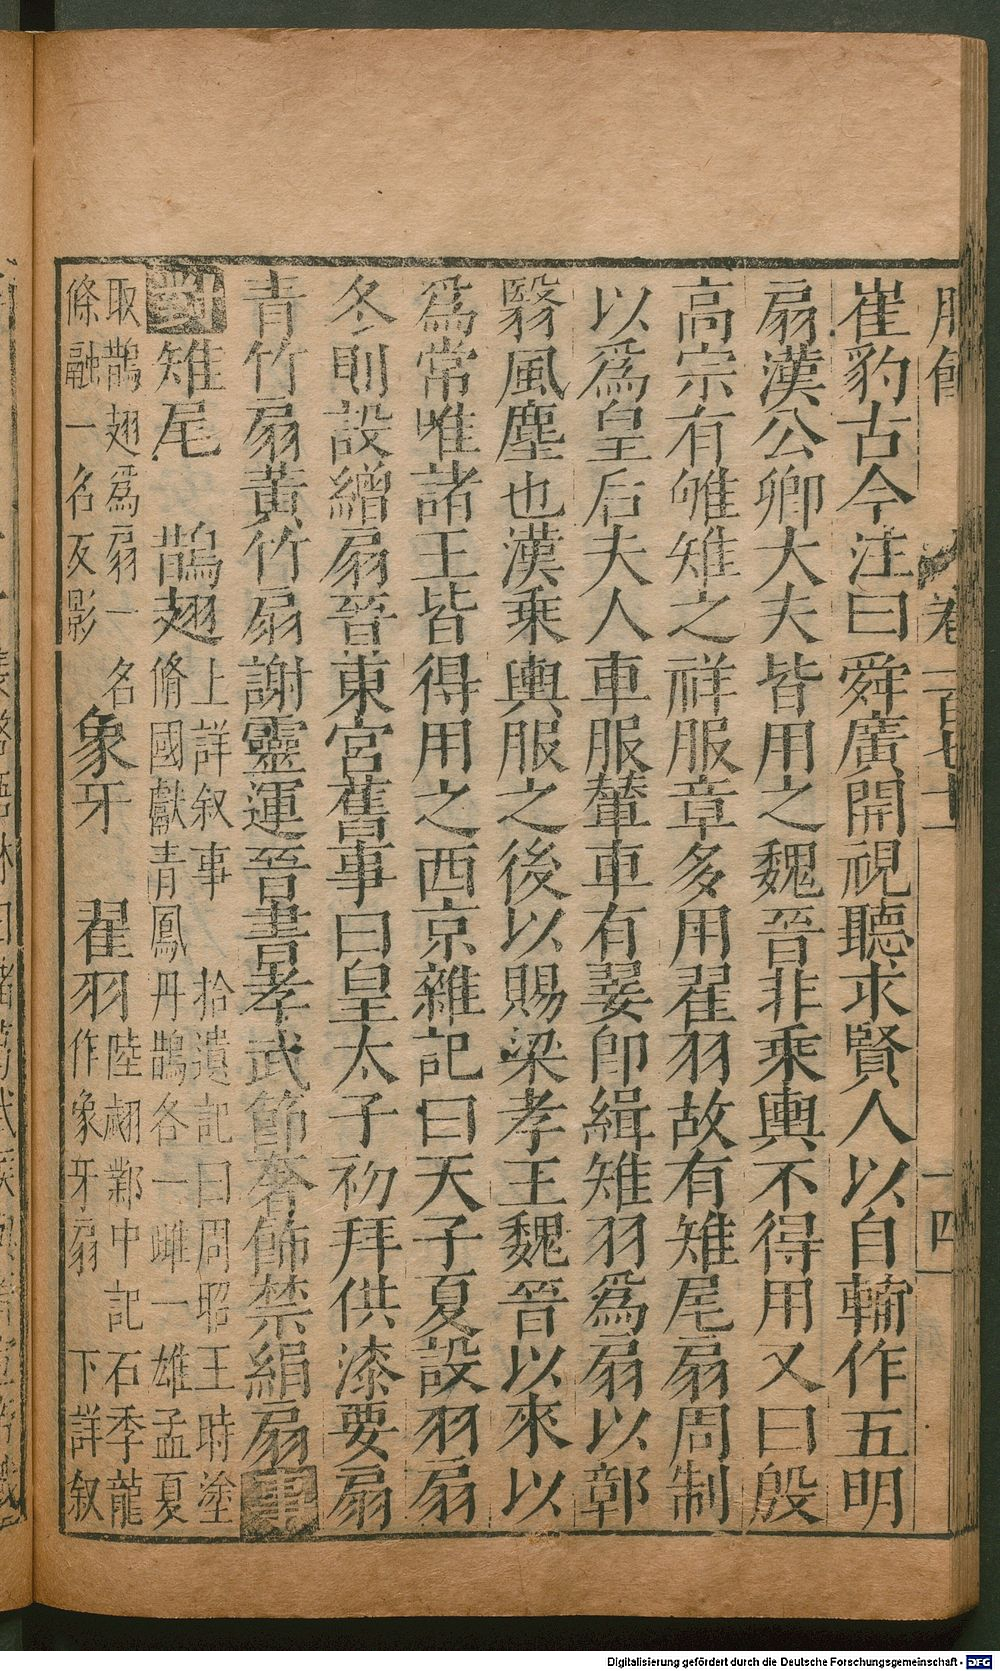 崔豹古今注曰舜廣開視聽求賢人以自輔作五明
扇漢公卿大夫皆用之魏晉非乘輿不得用又曰殷
高宗有雊雉之祥服章多用翟羽故有雉尾扇周制
以爲皇后夫人車服輦車有翣卽緝雉羽爲扇以鄣
翳風塵也漢乘輿服之後以賜梁孝王魏晉以來以
爲常唯諸王皆得用之西京雜記曰天子夏設羽扇
冬則設繒扇晉東宮舊事曰皇太子初拜供漆要扇
青竹扇黃竹扇謝靈運晉書孝武節奢飾禁絹扇事
對雉尾 鵲翅上詳叙事 拾遺記曰周昭王時塗
脩國獻青鳳丹鵲各一雌一雄孟夏
取鵲翅爲扇一名 象牙 翟羽陸翽鄴中記石季龍
條融一名仄影 作象牙扇 下詳叙
卷一百七十
十四
Digitalisierung gefördert durch die Deutsche Forschungsgemeinschaft - DFG